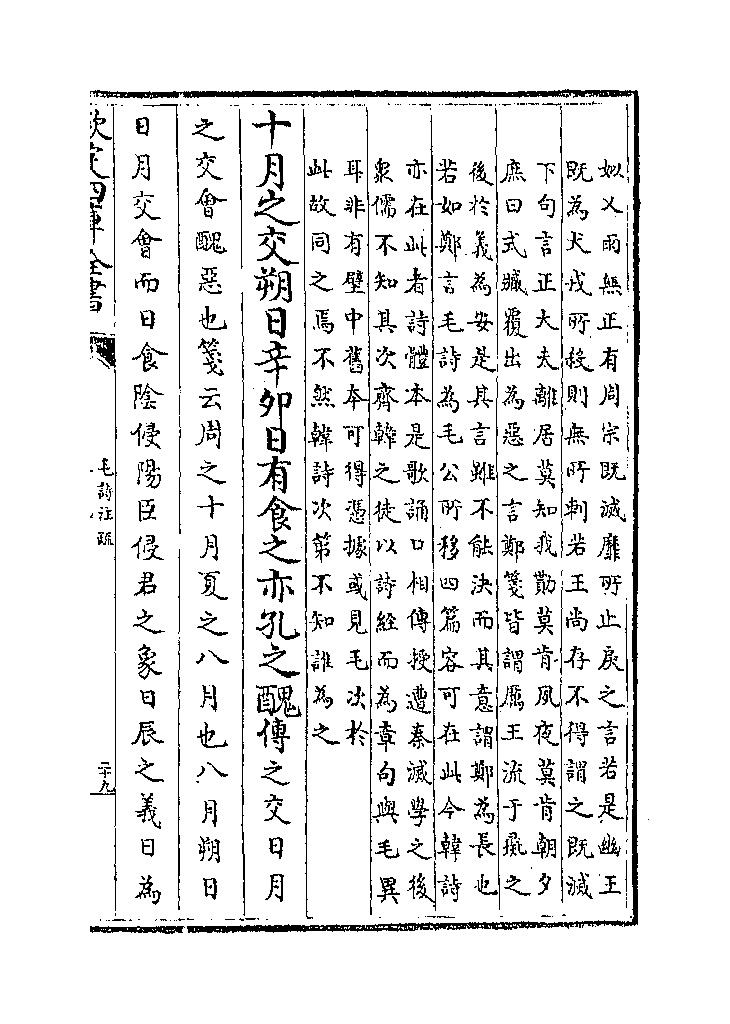 姒乂雨無正有周宗既滅靡所止戾之言若是幽王
既為犬戎所殺則無所刺若王尚存不得謂之既滅
下句言正大夫離居莫知我勩莫肯夙夜莫肯朝夕
庶曰式臧覆出為惡之言鄭箋皆謂厲王流于彘之
後於義為安是其言雖不能決而其意謂鄭為長也
若如鄭言毛詩為毛公所移四篇容可在此今韓詩
亦在此者詩體本是歌誦口相傳授遭秦滅學之後
衆儒不知其次齊韓之徒以詩經而為章句與毛異
耳非有壁中舊本可得憑據或見毛次於
此故同之焉不然韓詩次第不知誰為之
十月之交朔日辛卯日有食之亦孔之醜傳之交日月
之交會醜惡也箋云周之十月夏之八月也八月朔日
日月交會而日食陰侵陽臣侵君之象日辰之義日為
欽定四庫全書
毛詩注疏
二十九